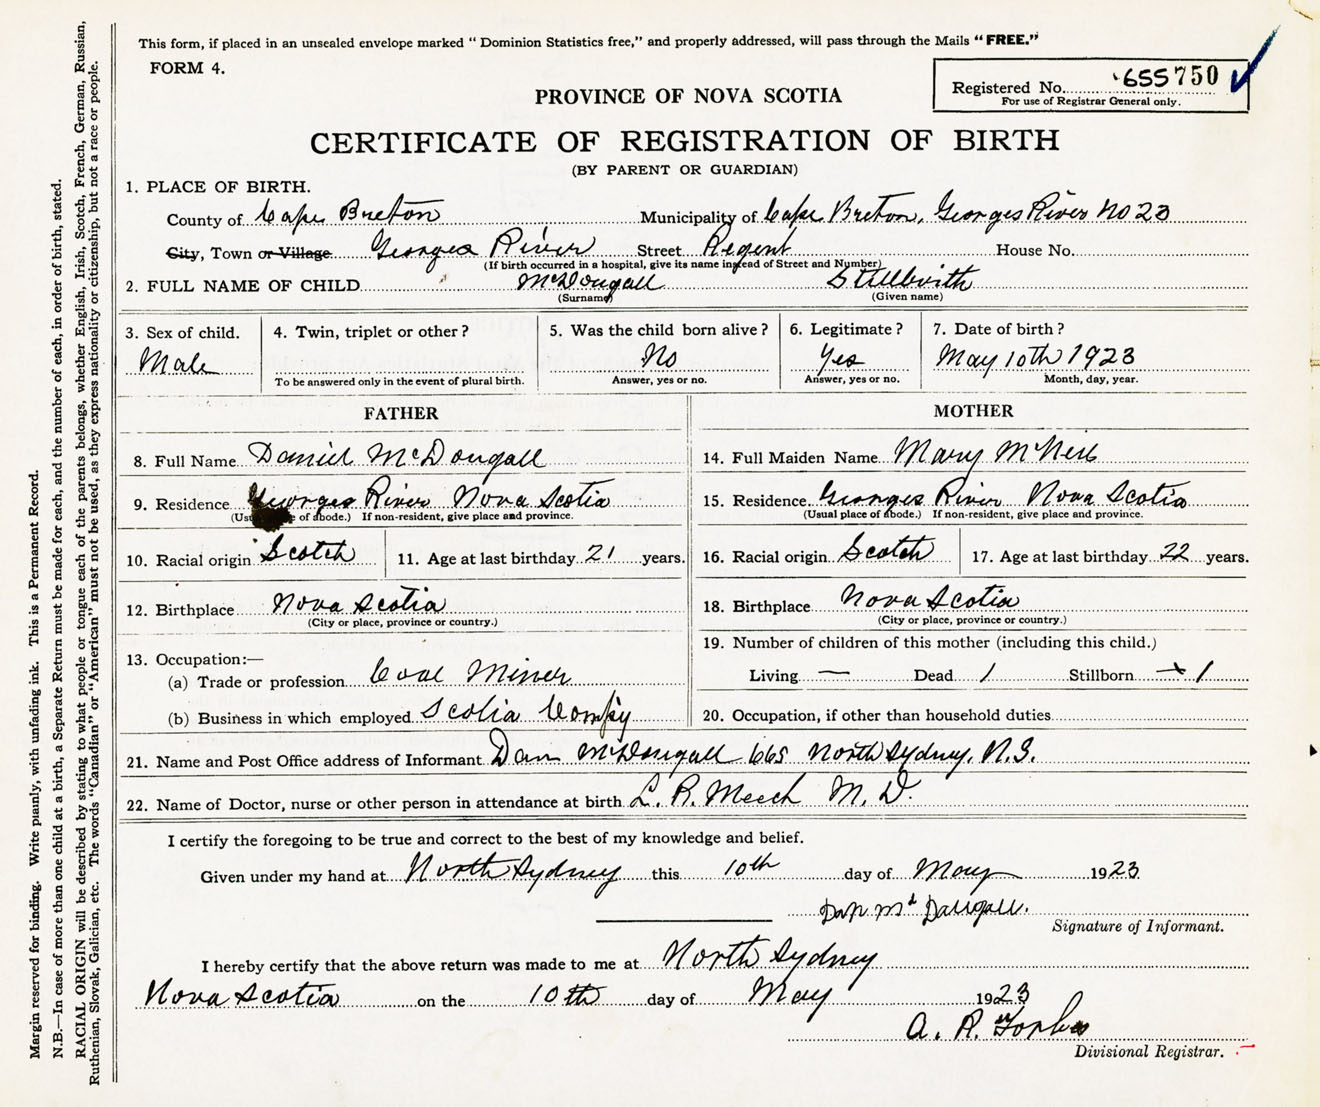 This form, if placed in an unsealed envelope marked "Dominion Statistics free," and properly addressed, will pass through the Mails "FREE."
FORM 4.
Registered No. 655750
For use of Registrar General only.
PROVINCE OF NOVA SCOTIA
CERTIFICATE OF REGISTRATION OF BIRTH
(BY PARENT OR GUARDIAN)
1. PLACE OF BIRTH.
County of Cape Breton Municipality of Cape Breton, Georges River No 23
City, Town or Village Georges River Street Regent House No.
(If birth occurred in a hospital, give its name instead of Street and Number)
2. FULL NAME OF CHILD McDougall Stillbirth
(Surname) (Given name)
3. Sex of child. 4. Twin, triplet or other? 5. Was the child born alive? 6. Legitimate? 7. Date of birth?
Male No Yes May 10th 1923
To be answered only in the event of plural birth. Answer, yes or no. Answer, yes or no. Month, day, year.
FATHER
8. Full Name Daniel McDougall
9. Residence Georges River Nova Scotia
(Usual place of abode.) If non-resident, give place and province.
10. Racial origin Scotch 11. Age at last birthday 21 years.
12. Birthplace Nova Scotia
(City or place, province or country.)
13. Occupation:—
(a) Trade or profession Coal Miner
(b) Business in which employed Scotia Comp'y
MOTHER
14. Full Maiden Name Mary McNeil
15. Residence Georges River Nova Scotia
(Usual place of abode.) If non-resident, give place and province.
16. Racial origin Scotch 17. Age at last birthday 22 years.
18. Birthplace Nova Scotia
(City or place, province or country.)
19. Number of children of this mother (including this child.)
Living — Dead 1 Stillborn 1
20. Occupation, if other than household duties
21. Name and Post Office address of Informant Dan McDougall 665 North Sydney, N.S.
22. Name of Doctor, nurse or other person in attendance at birth L. R. Meech M. D.
I certify the foregoing to be true and correct to the best of my knowledge and belief.
Given under my hand at North Sydney this 10th day of May 1923
Dan McDougall.
Signature of Informant.
I hereby certify that the above return was made to me at North Sydney
Nova Scotia on the 10th day of May 1923
A. R. Forbes
Divisional Registrar.
Margin reserved for binding. Write plainly, with unfading ink. This is a Permanent Record.
N.B.—In case of more than one child at a birth, a Separate Return must be made for each, and the number of each, in order of birth, stated.
RACIAL ORIGIN will be described by stating to what people or tongue each of the parents belongs, whether English, Irish, Scotch, French, German, Russian,
Ruthenian, Slovak, Galician, etc. The words "Canadian" or "American" must not be used, as they express nationality or citizenship, but not a race or people.